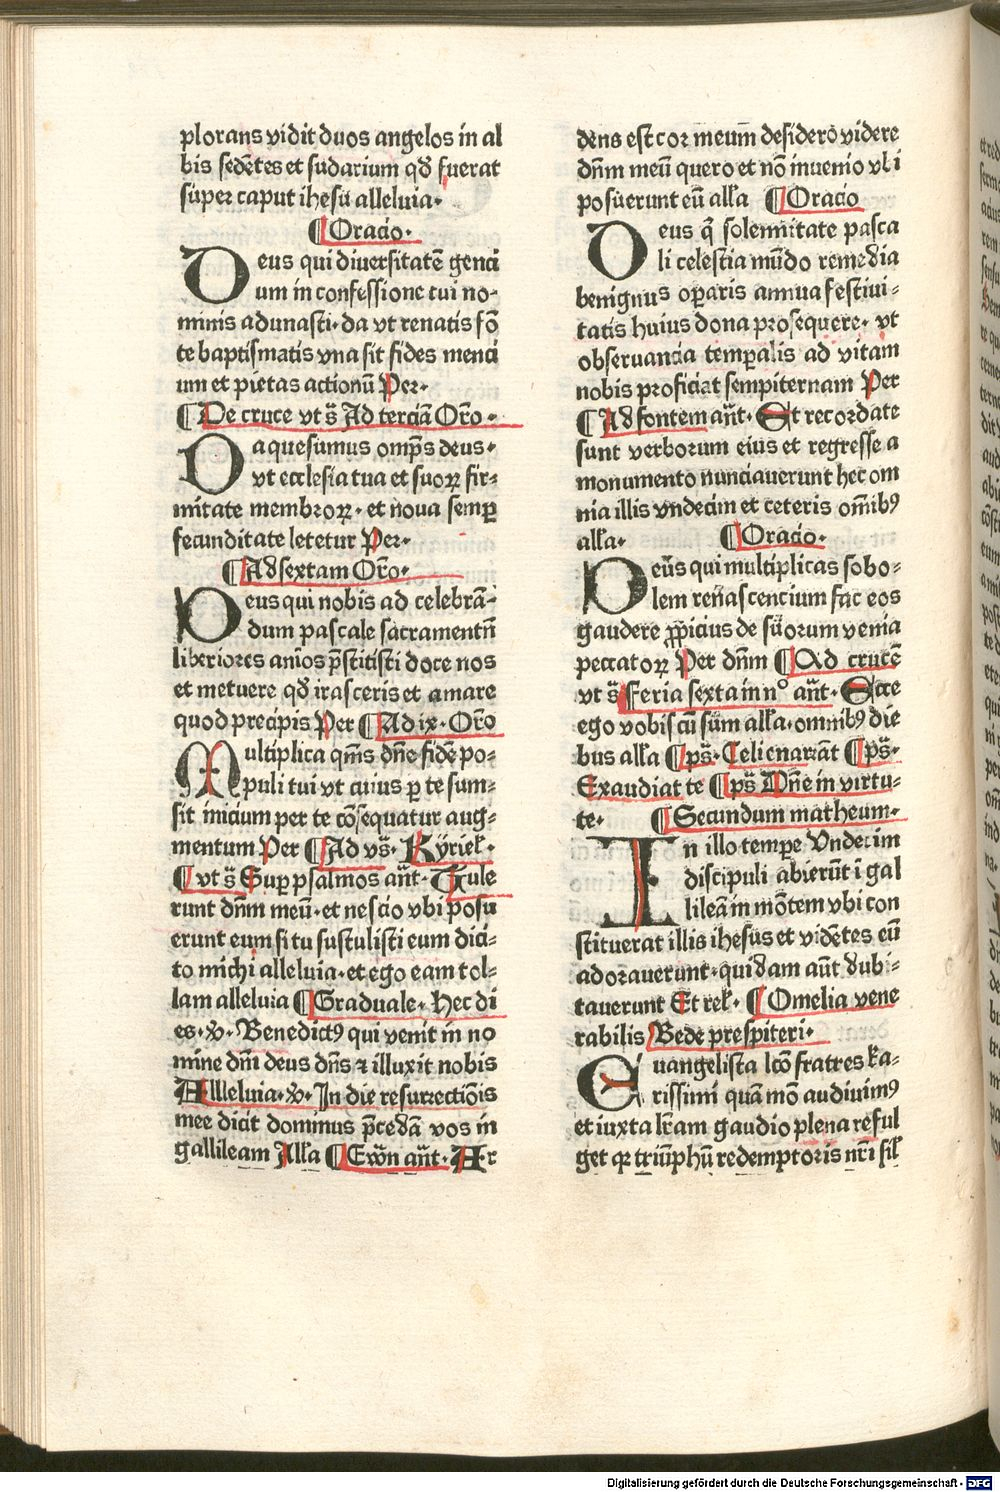 plorans vidit duos angelos in al
bis sedētes et sudarium qð fuerat
super caput ihesu alleluia.
¶ Oracio.
Deus qui diversitatē genci
um in confessione tui no-
minis adunasti. da vt renatis fō
te baptismatis vna sit fides menci
um et pietas actionū Per.
¶ De cruce vt s̄ Ad terciā Oro.
Da quesumus omp̄s deus.
vt ecclesia tua et suoꝝ fir-
mitate membroꝝ. et noua semꝑ
fecunditate letetur Per.
¶ Ad sextam Oro.
Deus qui nobis ad celebrā-
dum pascale sacramentū
liberiores anīos p̄stitisti doce nos
et metuere qð irasceris et amare
quod precipis Per ¶ Ad ix. Oro
Multiplica qm̄s dn̄e fidē po-
puli tui vt cuius ꝑ te sum-
sit inicium per te cōsequatur aug-
mentum Per ¶ Ad vs̄. Kyriel.
¶ vt s̄ Suꝑ psalmos an̄t. Tule
runt dn̄m meū. et nescio vbi posu
erunt eum si tu sustulisti eum dici-
to michi alleluia. et ego eam tol-
lam alleluia ¶ Graduale. Hec di
es. ꝟ. Benedictꝰ qui venit in no
mine dn̄i deus dn̄s ⁊ illuxit nobis
Allleluia. ꝟ. In die resurrectiōis
mee dicit dominus p̄cedā vos in
gallileam Alla ¶ Ewn̄ an̄t. Ar
dens est cor meum desidero videre
dn̄m meū quero et nō invenio vl i
posuerunt eū alla ¶ Oracio
Deus q̄ solemnitate pasca
li celestia mūdo remedia
benignus oꝑaris annua festiui-
tatis huius dona prosequere. vt
obseruancia temꝑalis ad vitam
nobis proficiat sempiternam Per
¶ Ad fontem an̄t. Et recordate
sunt verborum eius et regresse a
monumento nunciauerunt hec om
nia illis vndecim et ceteris omībꝰ
alla. ¶ Oracio.
Deus qui multiplicas sobo-
lem renascencium fac eos
gaudere ꝓpicius de suorum venia
peccatoꝝ Per dn̄m ¶ Ad crucē
vt s̄ Feria sexta in nº an̄t. Ecce
ego vobiscū sum alla. omnibꝰ die
bus alla ¶ ps̄. Celi enarrāt ¶ ps̄.
Exaudiat te ¶ ps̄ Dn̄e in virtu-
te. ¶ Secundum matheum.
In illo tempe Vndecim
discipuli abierūt ī gal
lileā in mōtem vbi con
stituerat illis ihesus et vidētes eū
adorauerunt. quidam aūt dubi-
tauerunt Et rel. ¶ Omelia vene
rabilis Bede prespiteri.
Euangelista lcō fratres ka-
rissimi quā mō audiuimꝰ
et iuxta lr̄am gaudio plena reful
get qꝛ triūphū redemptoris nr̄i sil
Digitalisierung gefördert durch die Deutsche Forschungsgemeinschaft - DFG